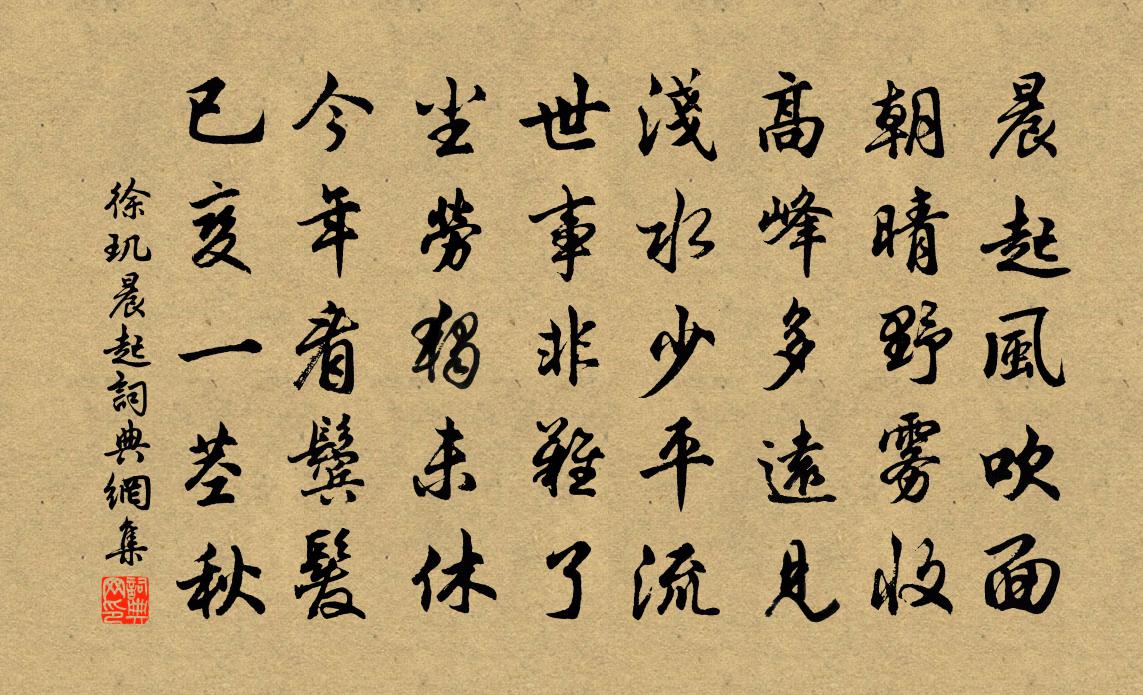 晨起風吹面
朝晴野雾收
高峰多遠見
淺水少平流
世事非難了
尘勞獨未休
今年看鬢髮
已变一茎秋
徐玑晨起詞典網集
詞典网印